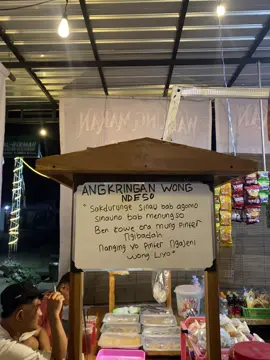 ANGKRINGAN WONG
NDESO
"Sakdurunge sinau bab agomo
sinauno bab menungso
Ben kowe ora mung pinter
ngibadah
Nanging yo pinter ngajeni
wong liyo"